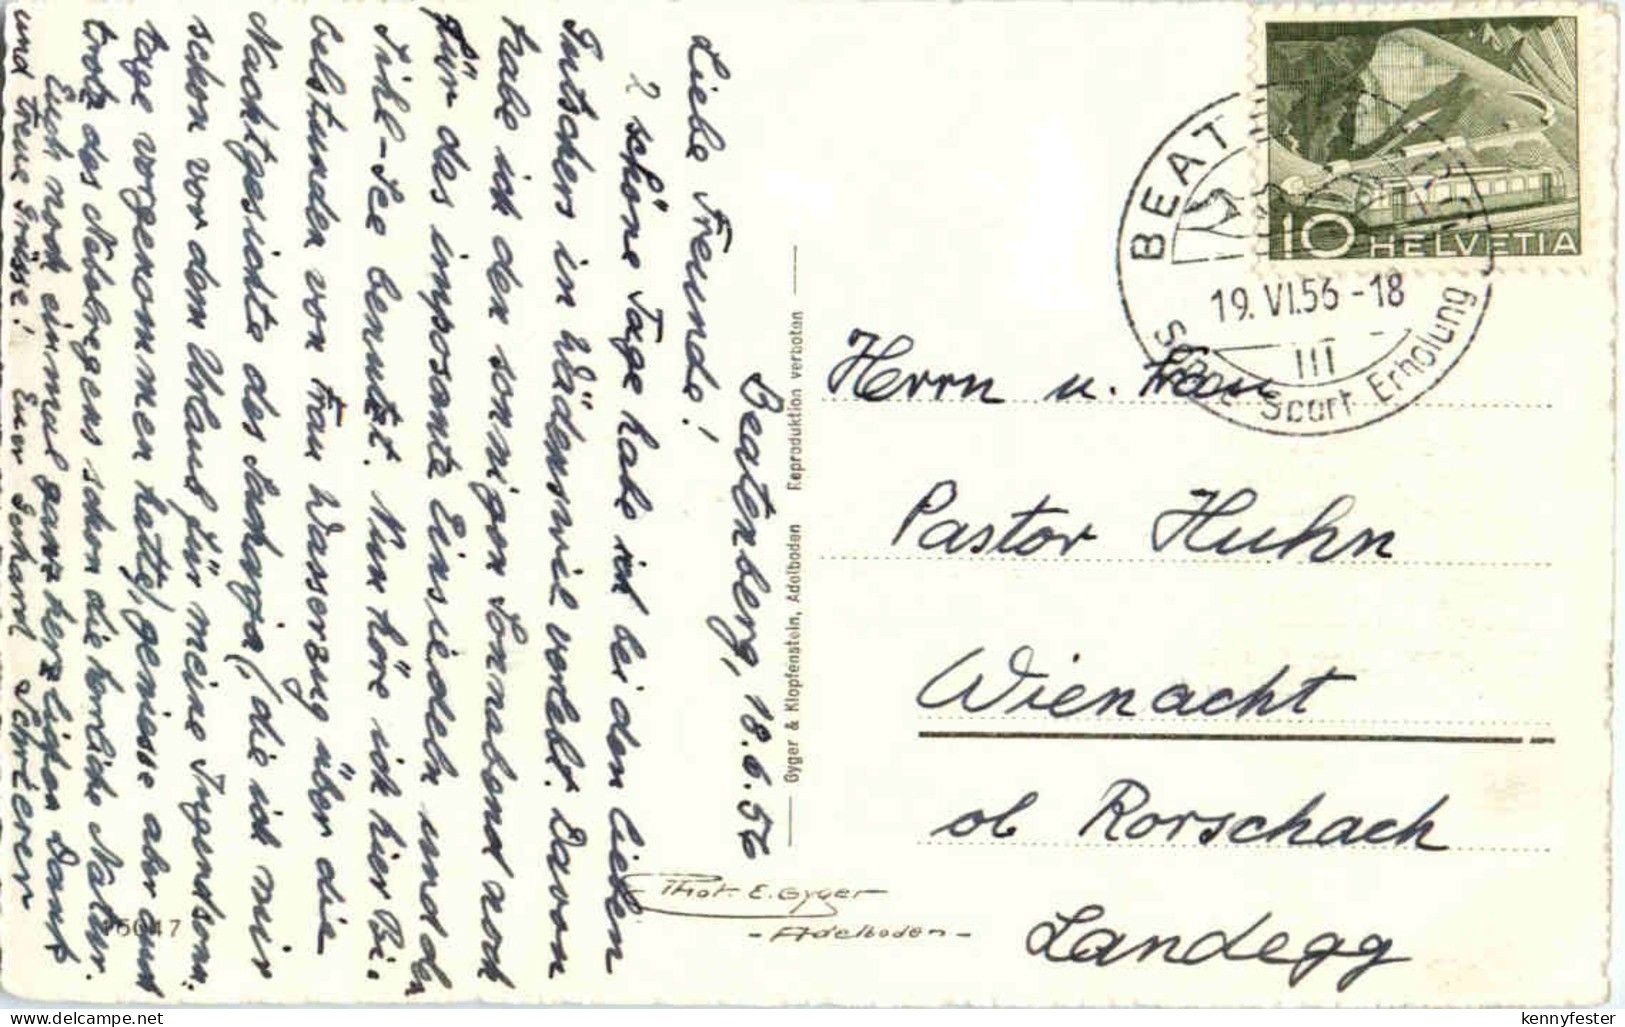 Beatenberg, 18.6.56
Liebe Freunde!
2 schöne Tage habe ich bei den lieben
in Wädenswil verlebt. Davon
habe ich den sonnigen Sonnabend noch
für das imposante Einsiedeln und den
Sihl-See benutzt. Nun höre ich hier Bi-
belstunden von Frau Wasserzug über die
Nachtgesichte des Sacharja (, die ich mir
schon vor dem Urlaub für meine Jugendstun-
tage vorgenommen hatte), geniesse aber auch
trotz des Nebelregens schon die herrliche Natur.
Euch noch einmal ganz herzlichen Dank
und treue Grüsse! Euer Gerhard
Gyger & Klopfenstein, Adelboden Reproduktion verboten
Phot. E. Gyger
- Adelboden -
15047
BEAT
19. VI.56 -18
III
Sport Erholung
10 HELVETIA
Herrn u. Frau
Pastor Huhn
Wienacht
ob Rorschach
Landegg
kennyfester